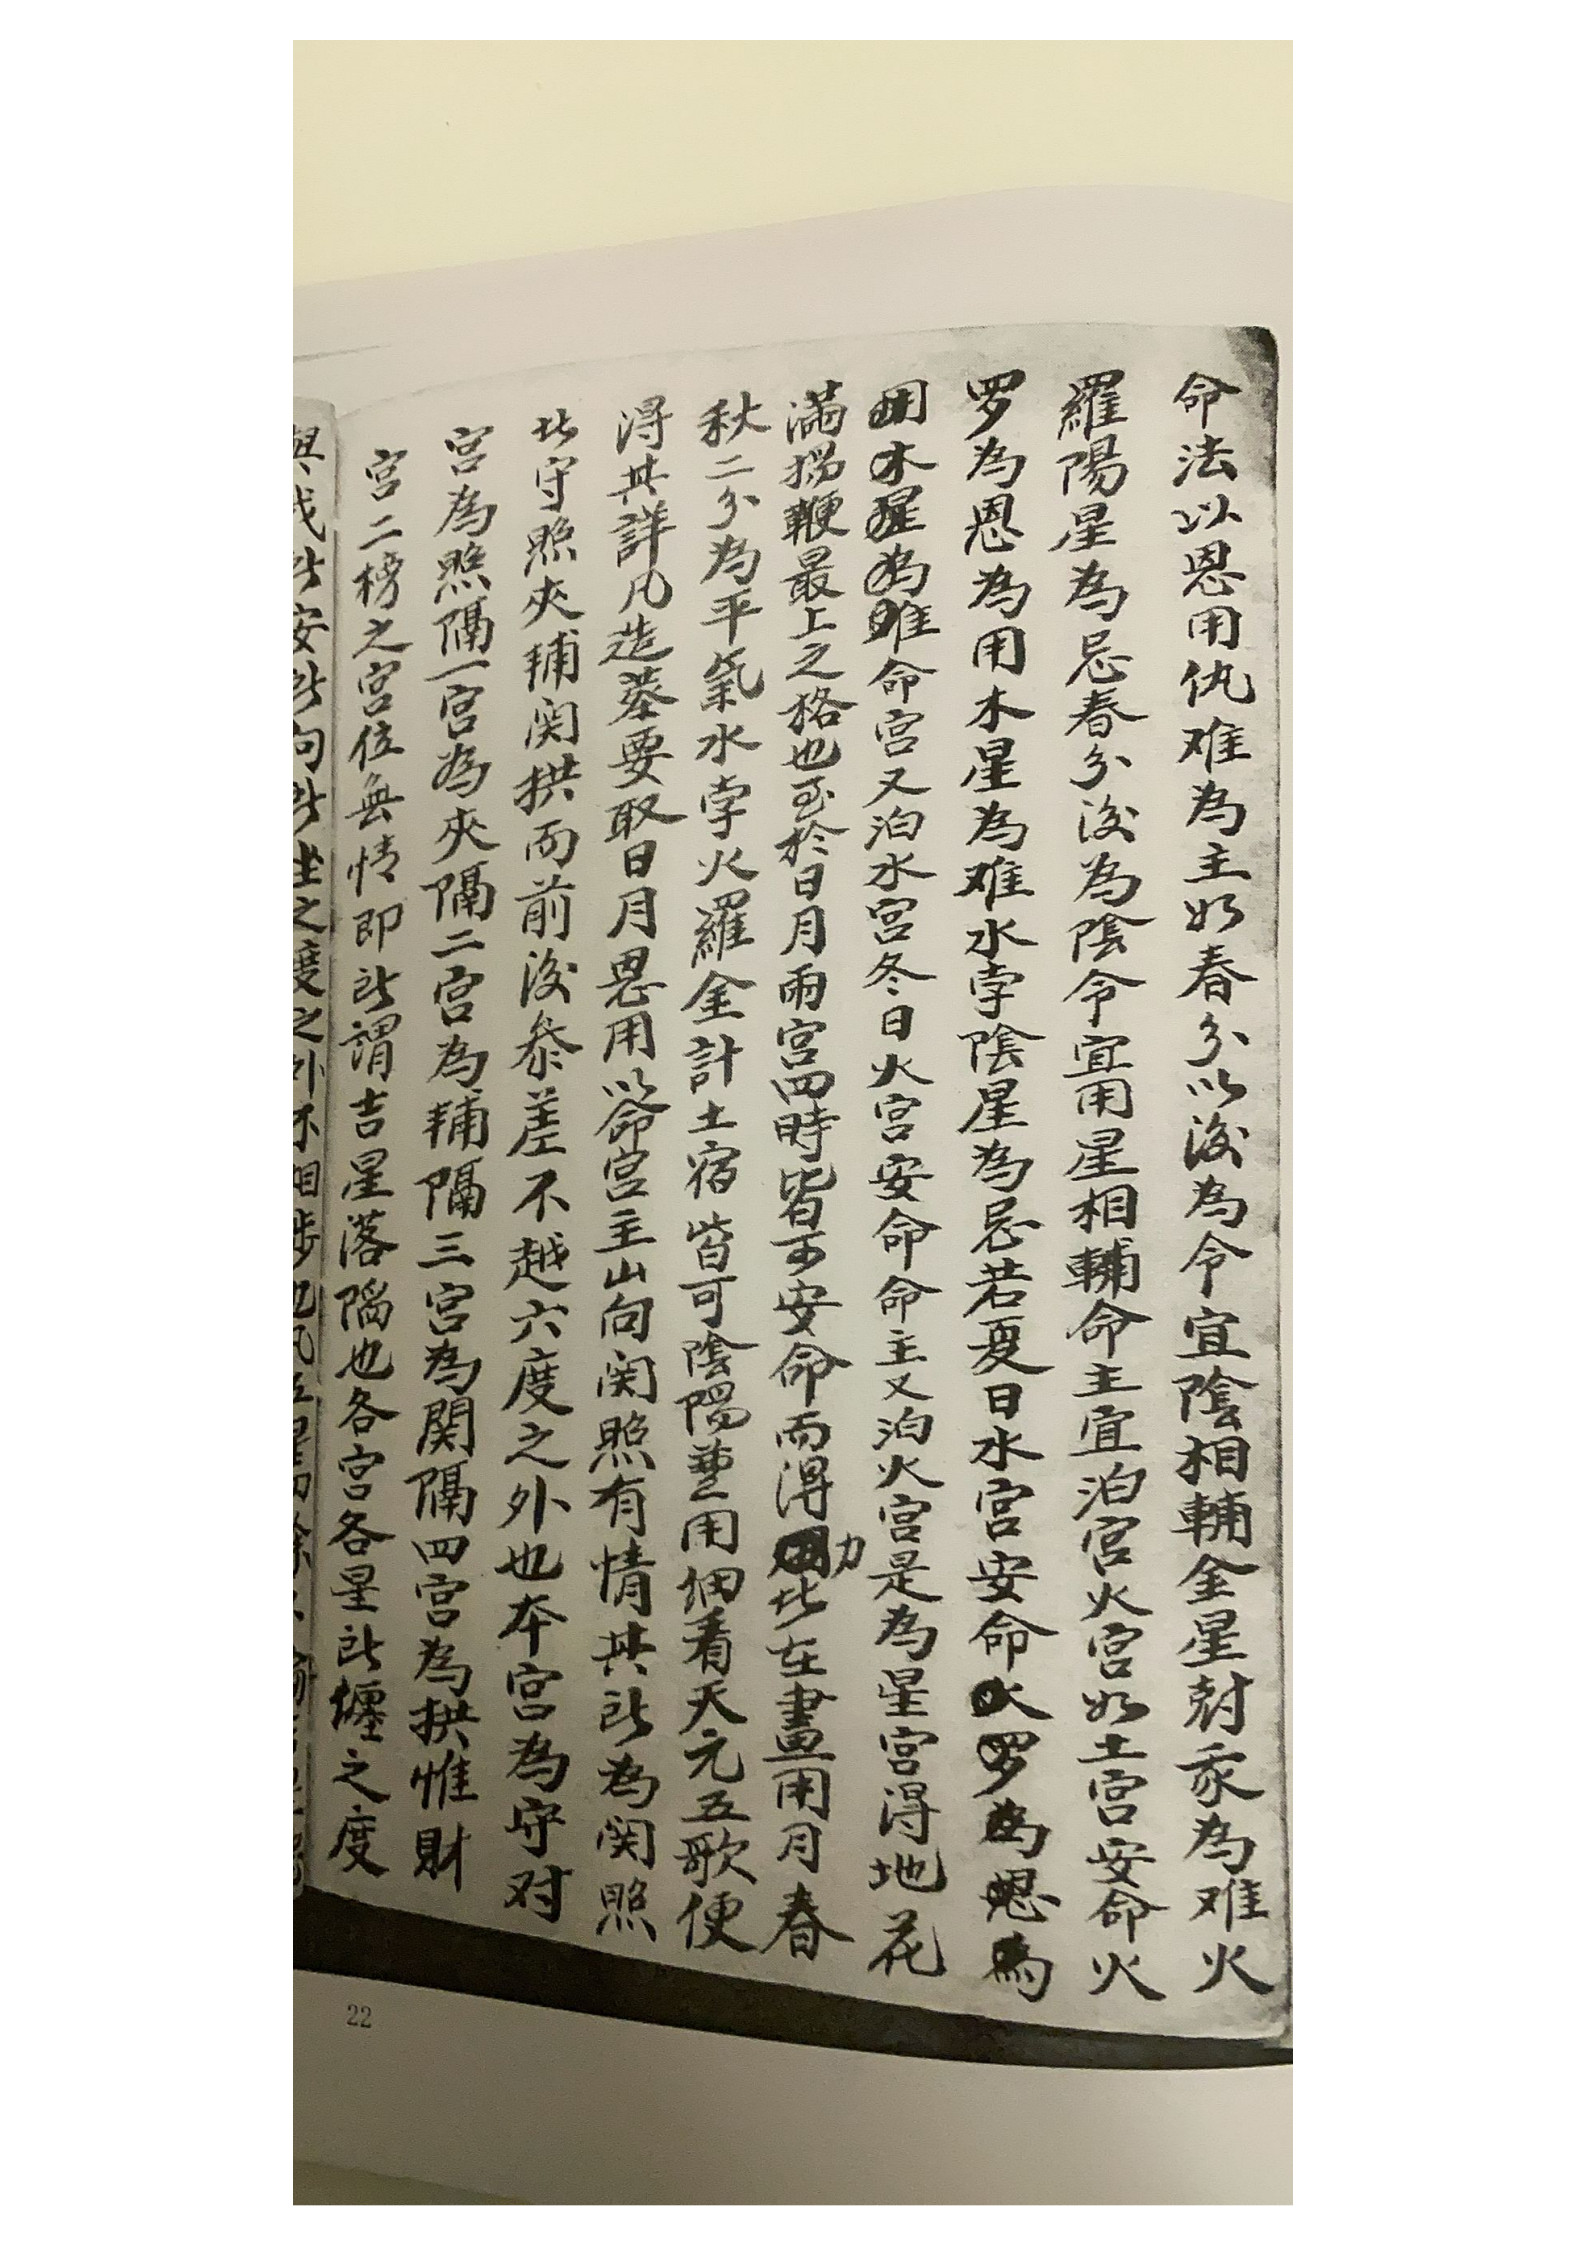 命法以恩用仇难為主如春分以後為令宜陰相輔金星尅炁為难火
羅陽星為忌春分後為陰令宜用星相輔命主宜泊宮火宮如土宮安命火
罗為恩為用木星為难水孛陰星為忌若夏日水宮安命火罗為恩為
用木星為难命宮又泊水宮冬日火宮安命命主又泊火宮是為星宮得地花
滿揚鞭最上之格也至於日月兩宮四時皆可安命而得力此在晝用月春
秋二分為平氣水孛火羅金計土宿皆可陰陽並用细看天元五歌便
得其詳凡造葬要取日月恩用以命宮主山向関照有情其所為関照
此守照夾輔関拱而前後叅差不越六度之外也本宮為守对
宮為照隔一宮為夾隔二宮為輔隔三宮為関隔四宮為拱惟財
宮二榜之宮位無情即所謂吉星落陷也各宮各星所纏之度
與我所安所向所坐之度之外不相涉也凡五星四餘
22